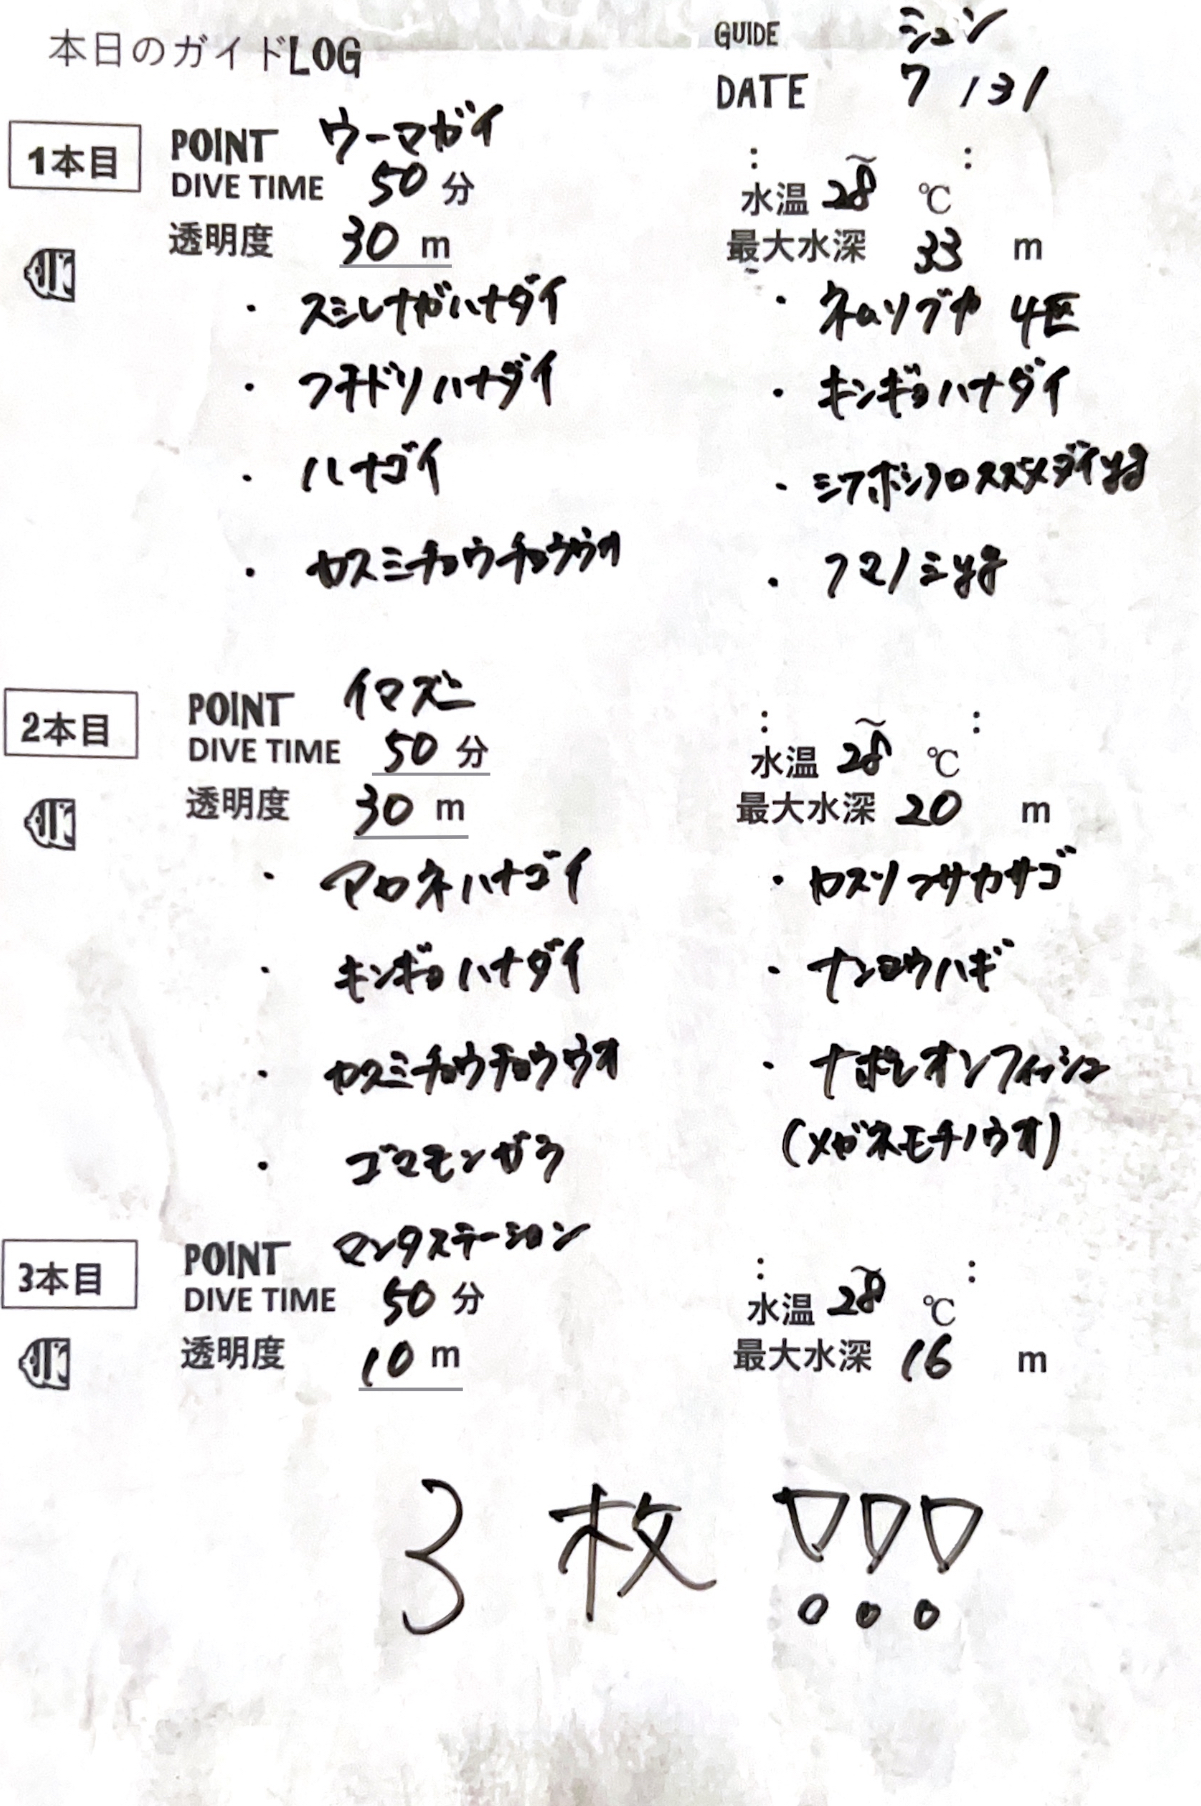 本日のガイドLOG
GUIDE シュン
DATE 7/31
1本目
POINT ウーマガイ
DIVE TIME 50 分
水温 28~ ℃
透明度 30 m
最大水深 33 m
・スミレナガハナダイ
・ネムリブカ 4匹
・フチドリハナダイ
・キンギョハナダイ
・ハナゴイ
・ミツボシクロスズメダイyg
・カスミチョウチョウウオ
・クマノミyg
2本目
POINT イマズニ
DIVE TIME 50 分
水温 28~ ℃
透明度 30 m
最大水深 20 m
・アカネハナゴイ
・カスリフサカサゴ
・キンギョハナダイ
・ナンヨウハギ
・カスミチョウチョウウオ
・ナポレオンフィッシュ
(メガネモチノウオ)
・ゴマモンガラ
3本目
POINT マンタステーション
DIVE TIME 50 分
水温 28~ ℃
透明度 10 m
最大水深 16 m
3 枚 !!!